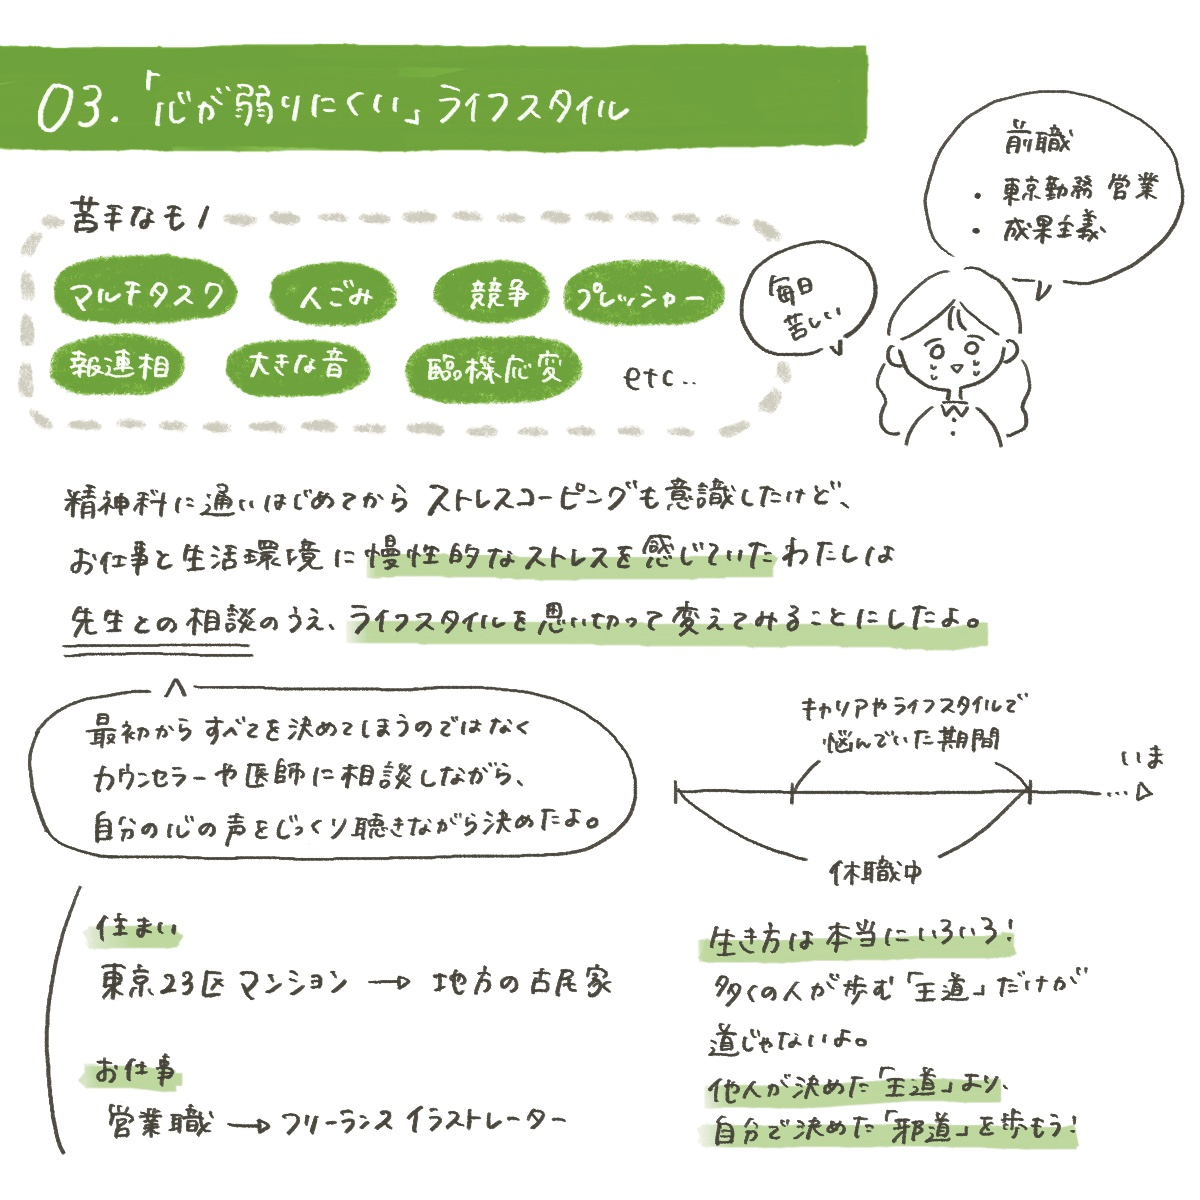 03.「心が弱りにくい」ライフスタイル
苦手なモノ
マルチタスク
人ごみ
競争
プレッシャー
報連相
大きな音
臨機応変
etc..
毎日
苦しい
前職
・東京勤務 営業
・成果主義
精神科に通いはじめてから ストレスコーピングも意識したけど、
お仕事と生活環境に慢性的なストレスを感じていたわたしは
先生との相談のうえ、ライフスタイルを思い切って変えてみることにしたよ。
最初からすべてを決めてしまうのではなく
カウンセラーや医師に相談しながら、
自分の心の声をじっくり聴きながら決めたよ。
キャリアやライフスタイルで
悩んでいた期間
いま
休職中
住まい
東京23区マンション → 地方の古民家
お仕事
営業職 → フリーランスイラストレーター
生き方は本当にいろいろ!
多くの人が歩む「王道」だけが
道じゃないよ。
他人が決めた「王道」より、
自分で決めた「邪道」を歩もう!